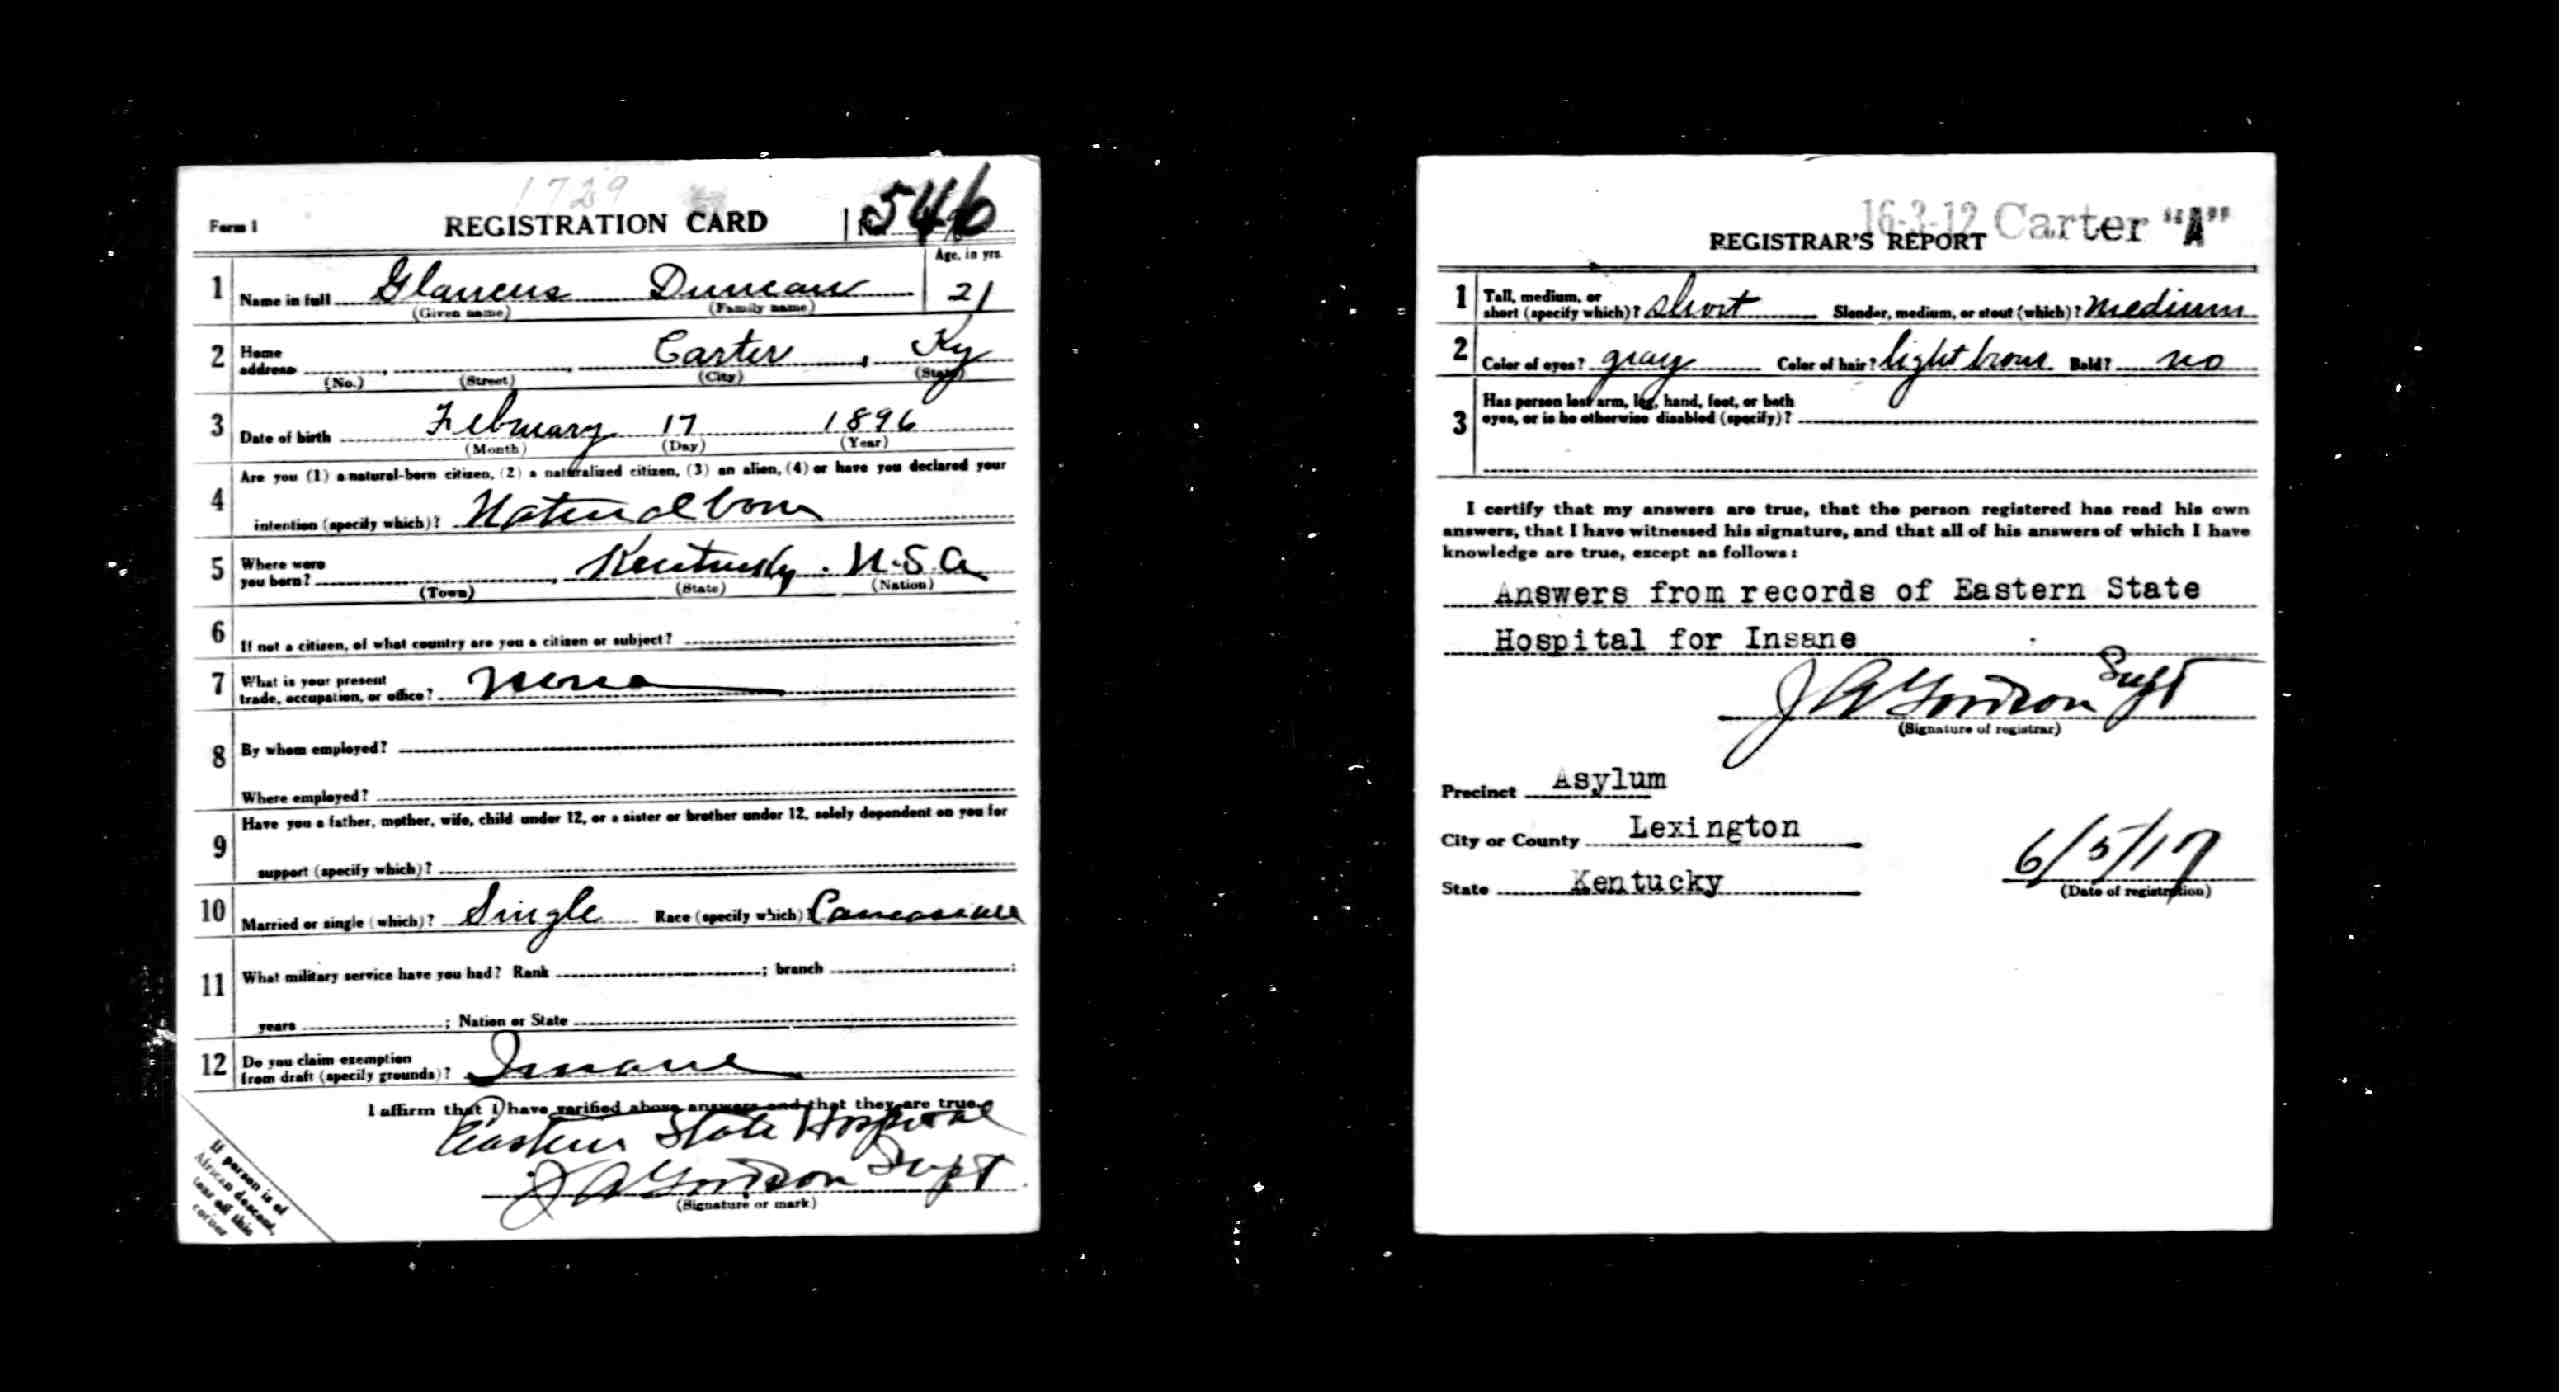 1729
Form 1 REGISTRATION CARD 546
Age, in yrs.
1 Name in full Glaucus Duncan 21
(Given name) (Family name)
2 Home address Carter, Ky
(No.) (Street) (City) (State)
3 Date of birth February 17 1896
(Month) (Day) (Year)
4 Are you (1) a natural-born citizen, (2) a naturalized citizen, (3) an alien, (4) or have you declared your
intention (specify which)? Natural born
5 Where were you born? Kentucky. U.S.A
(Town) (State) (Nation)
6 If not a citizen, of what country are you a citizen or subject?
7 What is your present trade, occupation, or office? None
8 By whom employed?
Where employed?
9 Have you a father, mother, wife, child under 12, or a sister or brother under 12, solely dependent on you for
support (specify which)?
10 Married or single (which)? Single Race (specify which)? Caucasian
11 What military service have you had? Rank ; branch ;
years ; Nation or State
12 Do you claim exemption from draft (specify grounds)? Insane
I affirm that I have verified above answers and that they are true.
Eastern State Hospital
J A Supt
(Signature or mark)
If person is of
African descent,
tear off this
corner
16-3-12 Carter "A"
REGISTRAR'S REPORT
1 Tall, medium, or short (specify which)? short Slender, medium, or stout (which)? medium
2 Color of eyes? gray Color of hair? light brown Bald? no
3 Has person lost arm, leg, hand, foot, or both
eyes, or is he otherwise disabled (specify)?
I certify that my answers are true, that the person registered has read his own
answers, that I have witnessed his signature, and that all of his answers of which I have
knowledge are true, except as follows:
Answers from records of Eastern State
Hospital for Insane
J A Supt
(Signature of registrar)
Precinct Asylum
City or County Lexington
State Kentucky
6/5/17
(Date of registration)